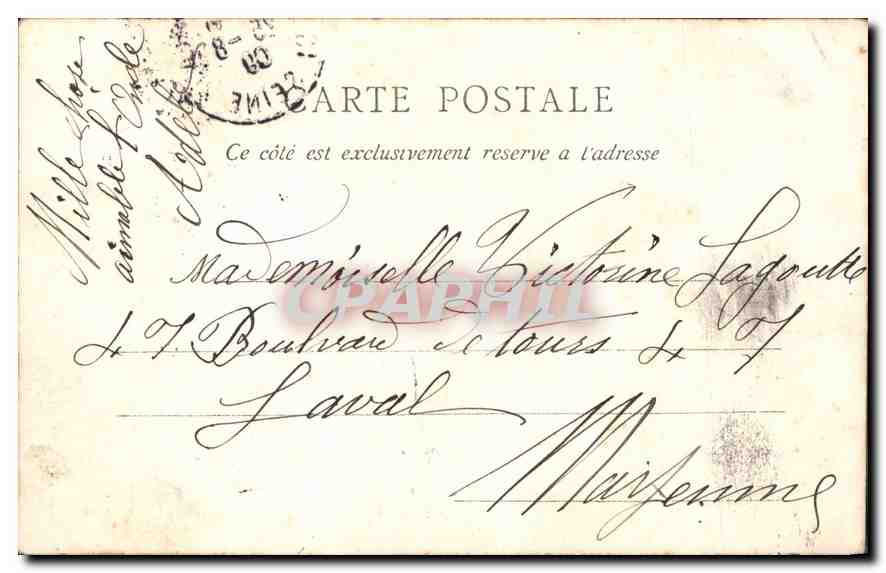 Mille chose
aimable
Adèle
8
00
SEINE
CARTE POSTALE
Ce côté est exclusivement reserve a l'adresse
Mademoiselle Victorine Lagoutte
CPAPHIL
47 Boulvard de tours 47
Laval
Mayenne